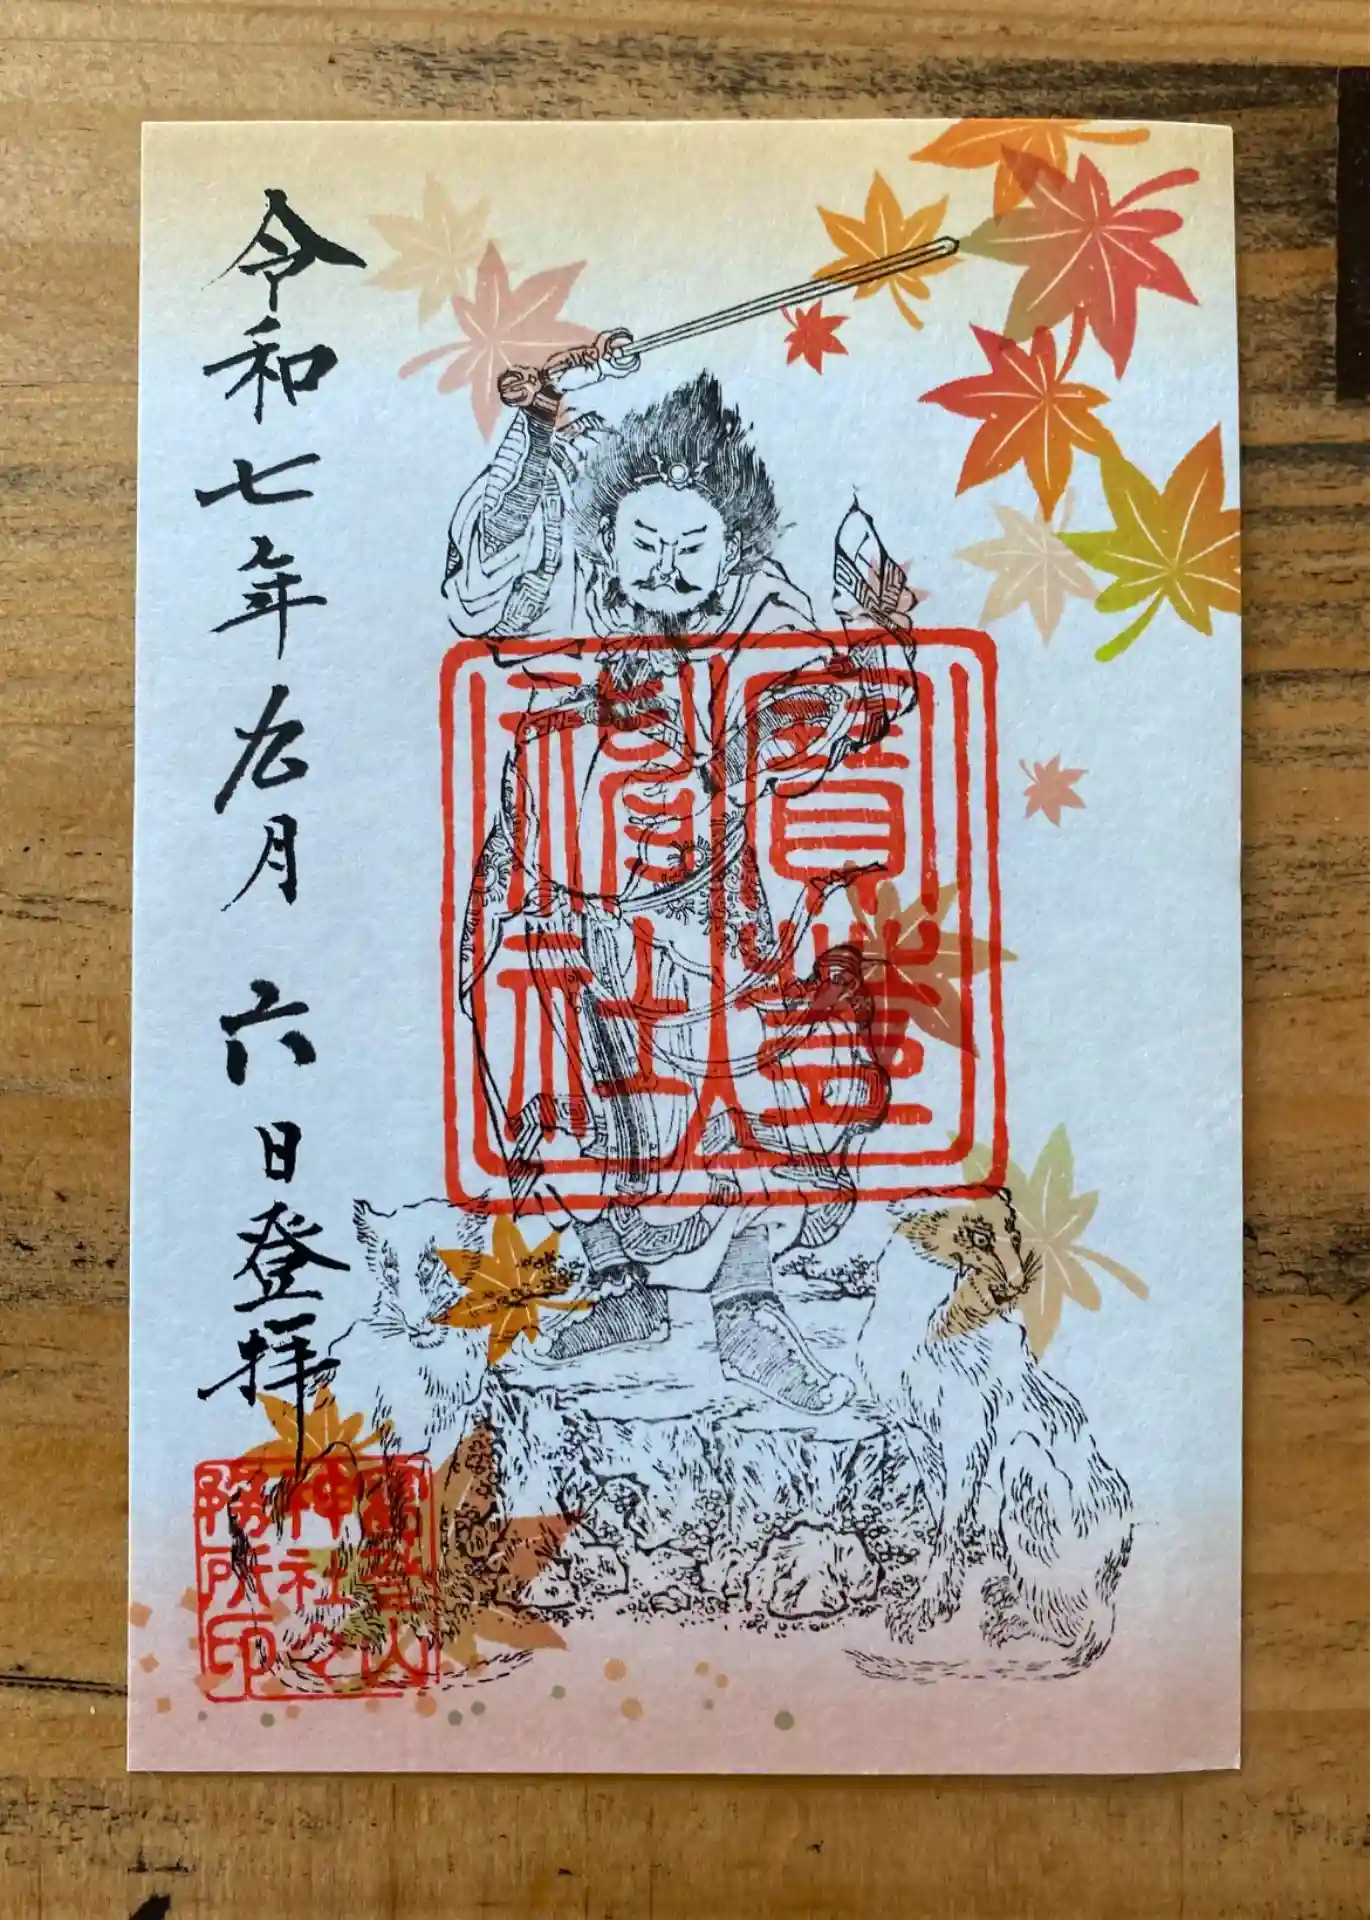 寶登山
神社
令和七年九月六日登拝
寶登山
神社々
務所印